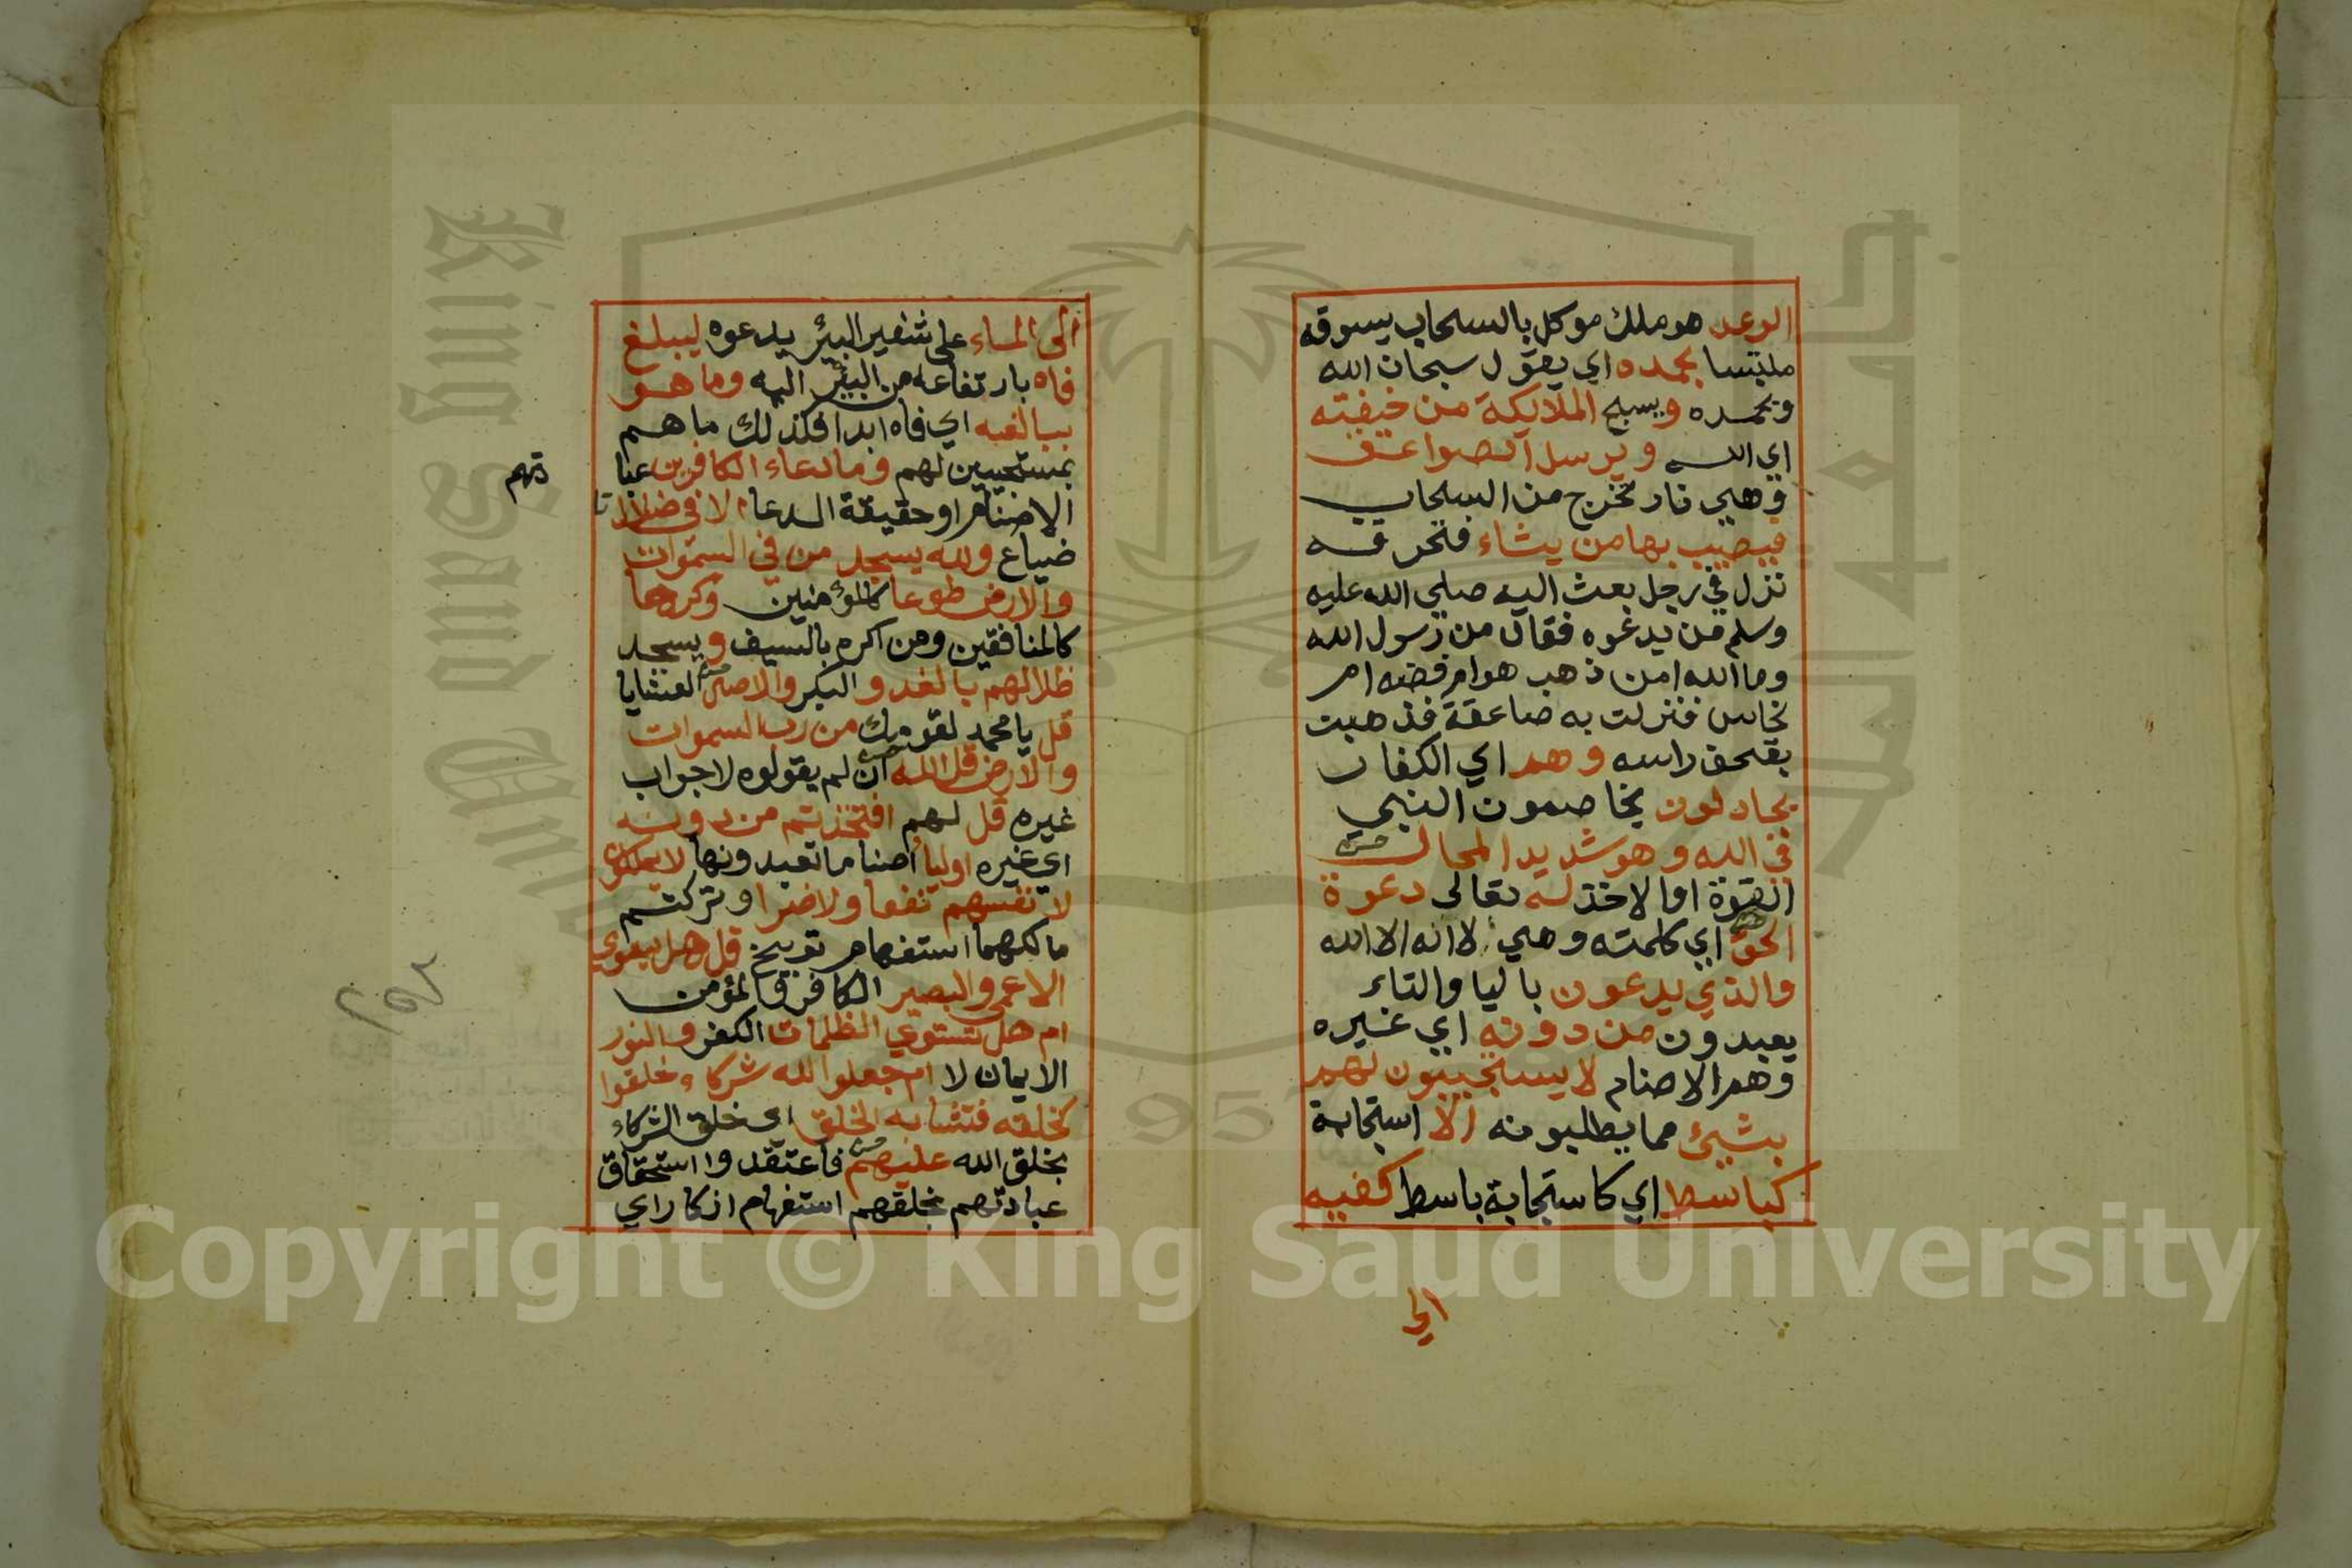 الرعد هو ملك موكل بالسحاب يسوقه
ملتبسا بحمده اي يقول سبحان الله
وبحمده ويسبح الملايكة من خيفته
اي الله ويرسل الصواعق
وهي نار تخرج من السحاب
فيصيب بها من يشاء فتحرقه
نزل في رجل بعث اليه صلي الله عليه
وسلم من يدعوه فقال من رسول الله
وما الله امن ذهب هو ام فضه ام
نحاس فنزلت به صاعقة فذهبت
بقحف راسه وهم اي الكفار
يجادلون يخاصمون النبي
في الله وهو شديد المحال
القوة او الاخذ له تعالى دعوة
الحق اي كلمته وهي لا اله الا الله
والذي يدعون باليا والتاء
يعبدون من دونه اي غيره
وهم الاصنام لا يستجيبون لهم
بشيئ مما يطلبونه الا استجابة
كباسط اي كاستجابة باسط كفيه
الي
الى الماء على شفير البئر يدعوه ليبلغ
فاه بارتفاعه من البئر اليه وما هو
ببالغه اي فاه ابدا فكذلك ما هم
بمستجيبين لهم وما دعاء الكافرين عبا
دتهم
الاصنام او حقيقة الدعاء الا في ضلال
ضياع ولله يسجد من في السموات
والارض طوعا كالمؤمنين وكرها
كالمنافقين ومن اكره بالسيف ويسجد
ظلالهم بالغدو البكر والاصال العشايا
قل يا محمد لقومك من رب السموات
والارض قل الله ان لم يقولوه لا جواب
غيره قل لهم افتخذتم من دونه
اي غيره اوليا اصناما تعبدونها لا يملكون
لانفسهم نفعا ولا ضرا وتركتم
مالكهما استفهام توبيخ قل هل يستوي
الاعمى والبصير الكافر والمؤمن
ام هل تستوي الظلمات الكفر والنور
الايمان لا ام جعلوا لله شركاء خلقوا
كخلقه فتشابه الخلق اي خلق الشركاء
بخلق الله عليهم فاعتقدوا استحقاق
عبادتهم بخلقهم استفهام انكار اي
King Saud University
1957
Copyright © King Saud University